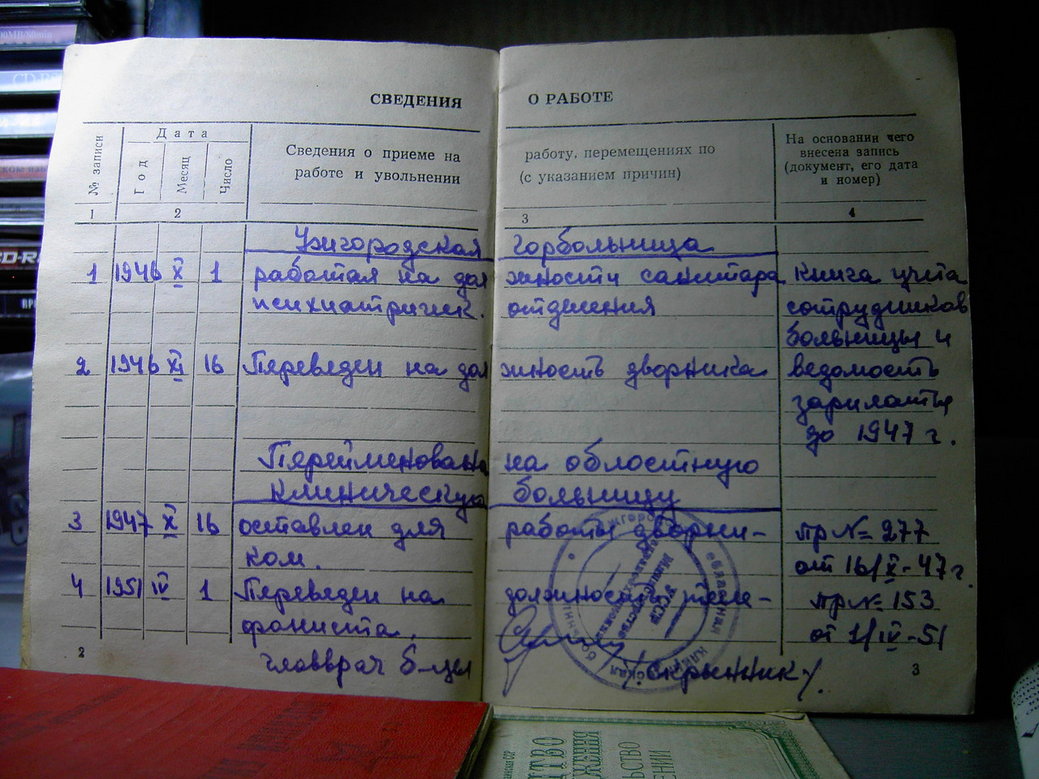 СВЕДЕНИЯ О РАБОТЕ
№ записи
Дата
Год
Месяц
Число
Сведения о приеме на работу, перемещениях по
работе и увольнении (с указанием причин)
На основании чего
внесена запись
(документ, его дата
и номер)
1 2 3 4
Ужгородская горбольница
1 1946 X 1 работал на должности санитара книга учета
психиатрическ. отделения сотрудников
больницы и
2 1946 XI 16 Переведен на должность дворника ведомость
зарплаты
до 1947 г.
Переименована на областную
клиническую больницу
3 1947 X 16 оставлен для работы дворни- пр № 277
ком. от 16/X-47 г.
4 1951 IV 1 Переведен на должность теле- пр № 153
фониста. от 1/IV-51
главврач б-цы /Скрынник/
2
3
CD-R